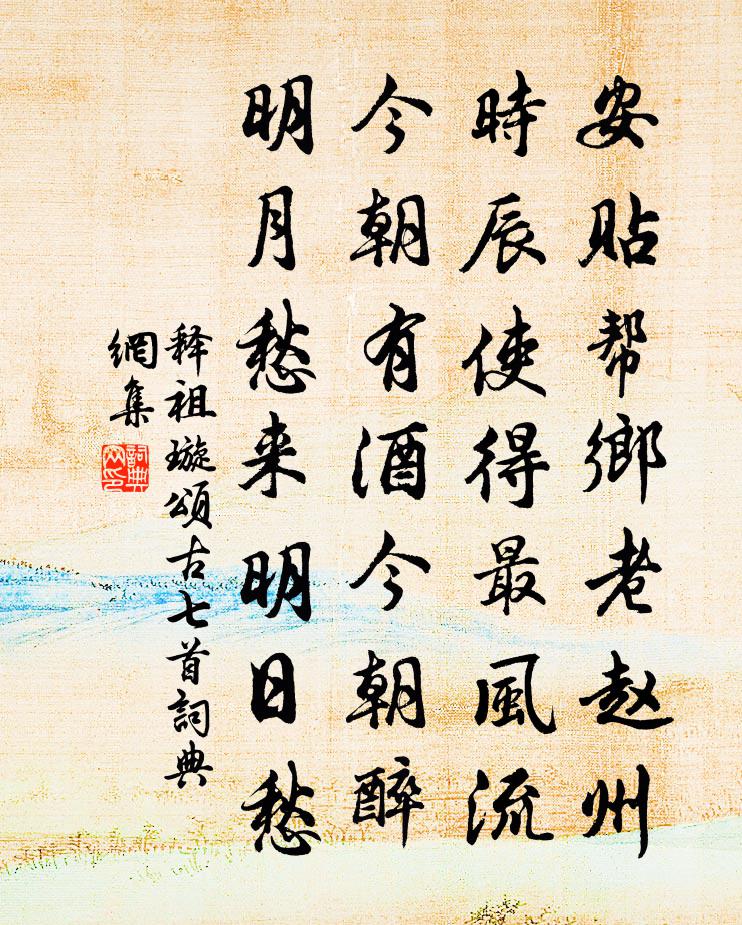 安贴帮鄉老赵州
時辰使得最風流
今朝有酒今朝醉
明月愁来明日愁
释祖璇頌古七首詞典
網集
詞典
网印